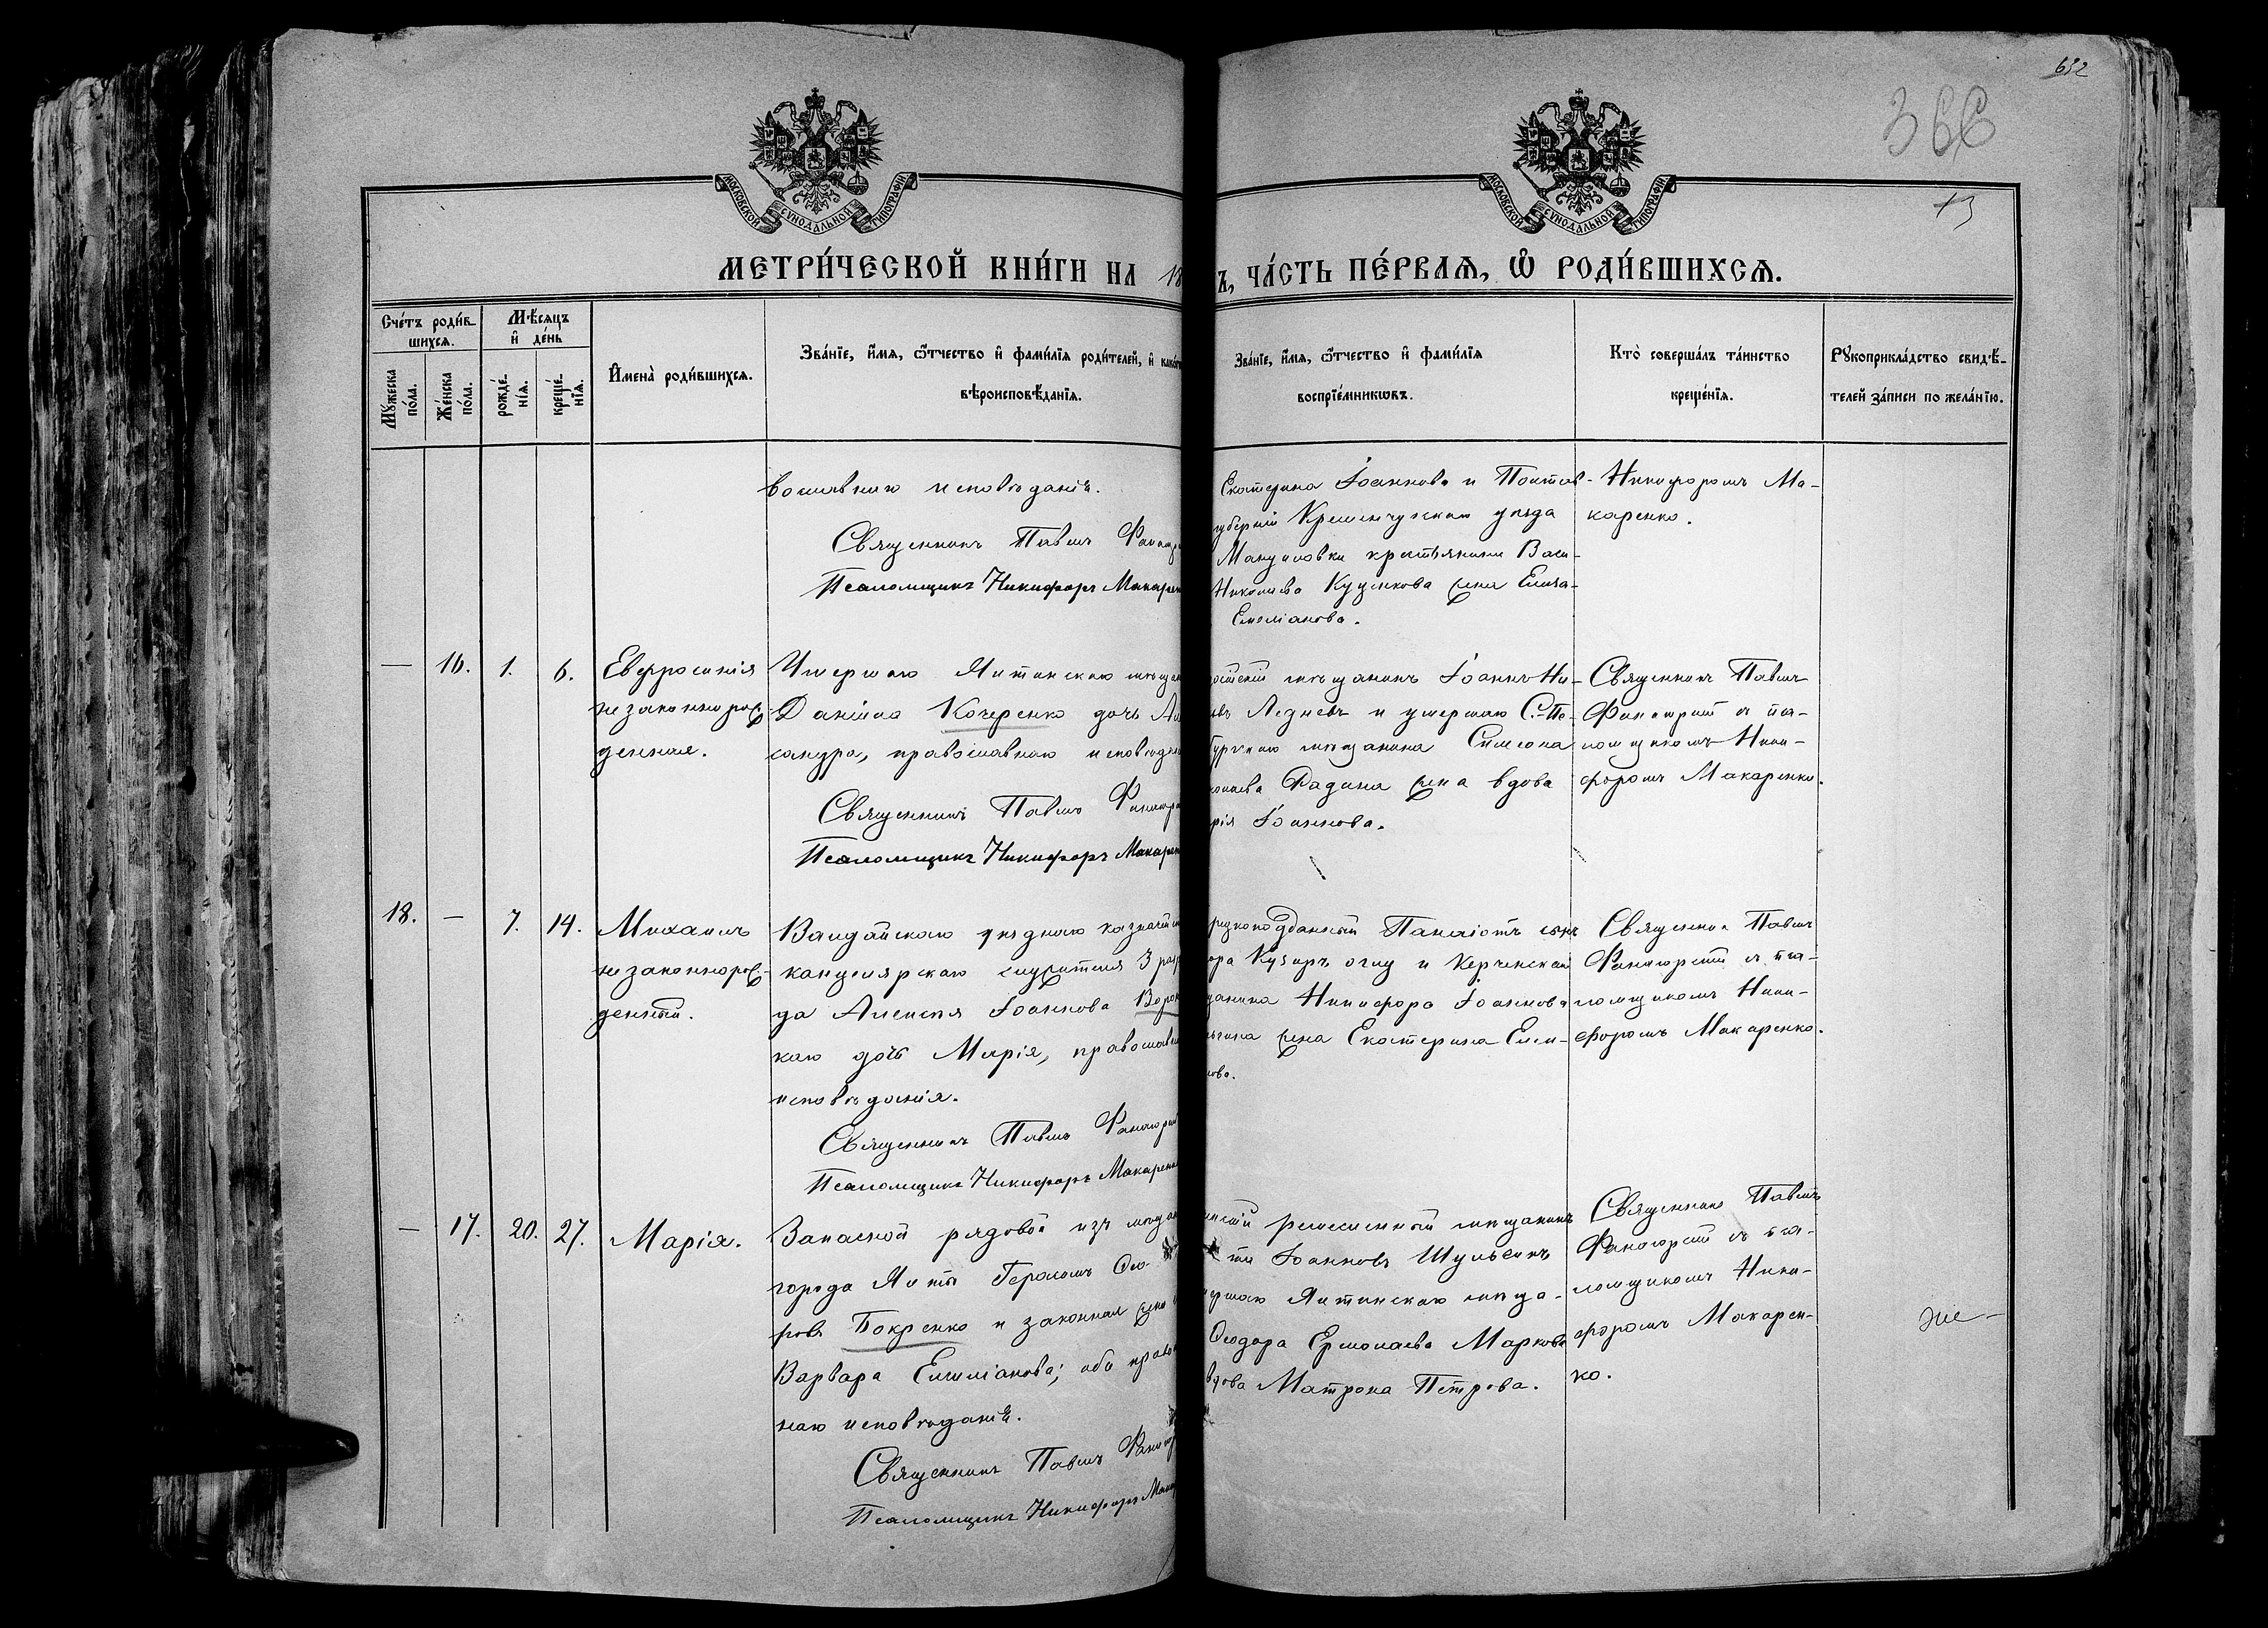 652
366
13
МОСКОВСКОЙ СѴНОДАЛЬНОЙ ТИПОГРАФІИ
МОСКОВСКОЙ СѴНОДАЛЬНОЙ ТИПОГРАФІИ
МЕТРИ́ЧЕСКОЙ КНИ́ГИ НА 18
Ъ, ЧА́СТЬ ПЕ́РВАѦ, Ѽ РОДИ́ВШИХСѦ.
Сче́тъ роди́в-
шихсѧ.
Мѣ́сѧцъ
и҆ де́нь
Мꙋ́жеска
по́ла.
Же́нска
по́ла.
рожде́-
нїѧ.
креще́-
нїѧ.
И҆мена̀ роди́вшихсѧ.
Зва́нїе, и҆́мѧ, ѻ҆́тчество и҆ фами́лїѧ роди́телей, и҆ како́г
вѣроисповѣ́данїѧ.
Зва́нїе, и҆́мѧ, ѻ҆́тчество и҆ фами́лїѧ
воспрїе́мникѡвъ.
Кто̀ соверша́лъ та́инство
креще́нїѧ.
Рꙋкоприкла́дство свидѣ́-
телей за́писи по жела́нїю.
вославнаго исповѣданія.
Священникъ Павелъ Фанагор
Псаломщикъ Никифоръ Макарен
Екатерина Іоаннова и Полтав-
губерніи Кременчугскаго уѣзда
Мануиловки крестьянина Васи-
Николаева Куценкова жена Елиза-
Емеліанова.
Никифоромъ Ма-
каренко.
— 16. 1. 6.
Евфросинія
незаконнорож-
денная.
Умершаго Ялтинскаго мѣщан
Даніила Кочеренко дочь Ал
сандра, православнаго исповѣдан
Священникъ Павелъ Фанагор
Псаломщикъ Никифоръ Макарен
мѣщанинъ Іоаннъ Ни-
въ Ледневъ и умершаго С.-Пе-
бургскаго мѣщанина Симеона
Фадина жена вдова
рія Іоаннова.
Священникъ Павелъ
Фанагорскій съ пса-
ломщикомъ Ники-
форомъ Макаренко.
18. — 7. 14.
Михаилъ
незаконнорож-
денный.
Валдайскаго уѣзднаго казначей
канцелярскаго служителя 3 разр
да Алексѣя Іоаннова Ворон
каго дочь Марія, православн
исповѣданія.
Священникъ Павелъ Фанагорс
Псаломщикъ Никифоръ Макаренк
рецкоподданный Панаіотъ сынъ
ора Кузаръ оглу и Керченскаго
щанина Никифора Іоаннова
жена Екатерина Еме-
нова.
Священникъ Павелъ
Фанагорскій съ пса-
ломщикомъ Ники-
форомъ Макаренко.
— 17. 20. 27.
Марія.
Запасной рядовой изъ мѣщан
города Ялты Герасимъ Ѳео-
ровъ Бокренко и законная жена
Варвара Емиліанова; оба правос
наго исповѣданія.
Священникъ Павелъ Фанагор
Псаломщикъ Никифоръ Мака
ремесленный мѣщанинъ
Іоанновъ Шульгинъ
мершаго Ялтинскаго мѣща-
Ѳеодора Ермолаева Маркова
вдова Матрона Петрова.
Священникъ Павелъ
Фанагорскій съ пса-
ломщикомъ Ники-
форомъ Макарен-
ко.